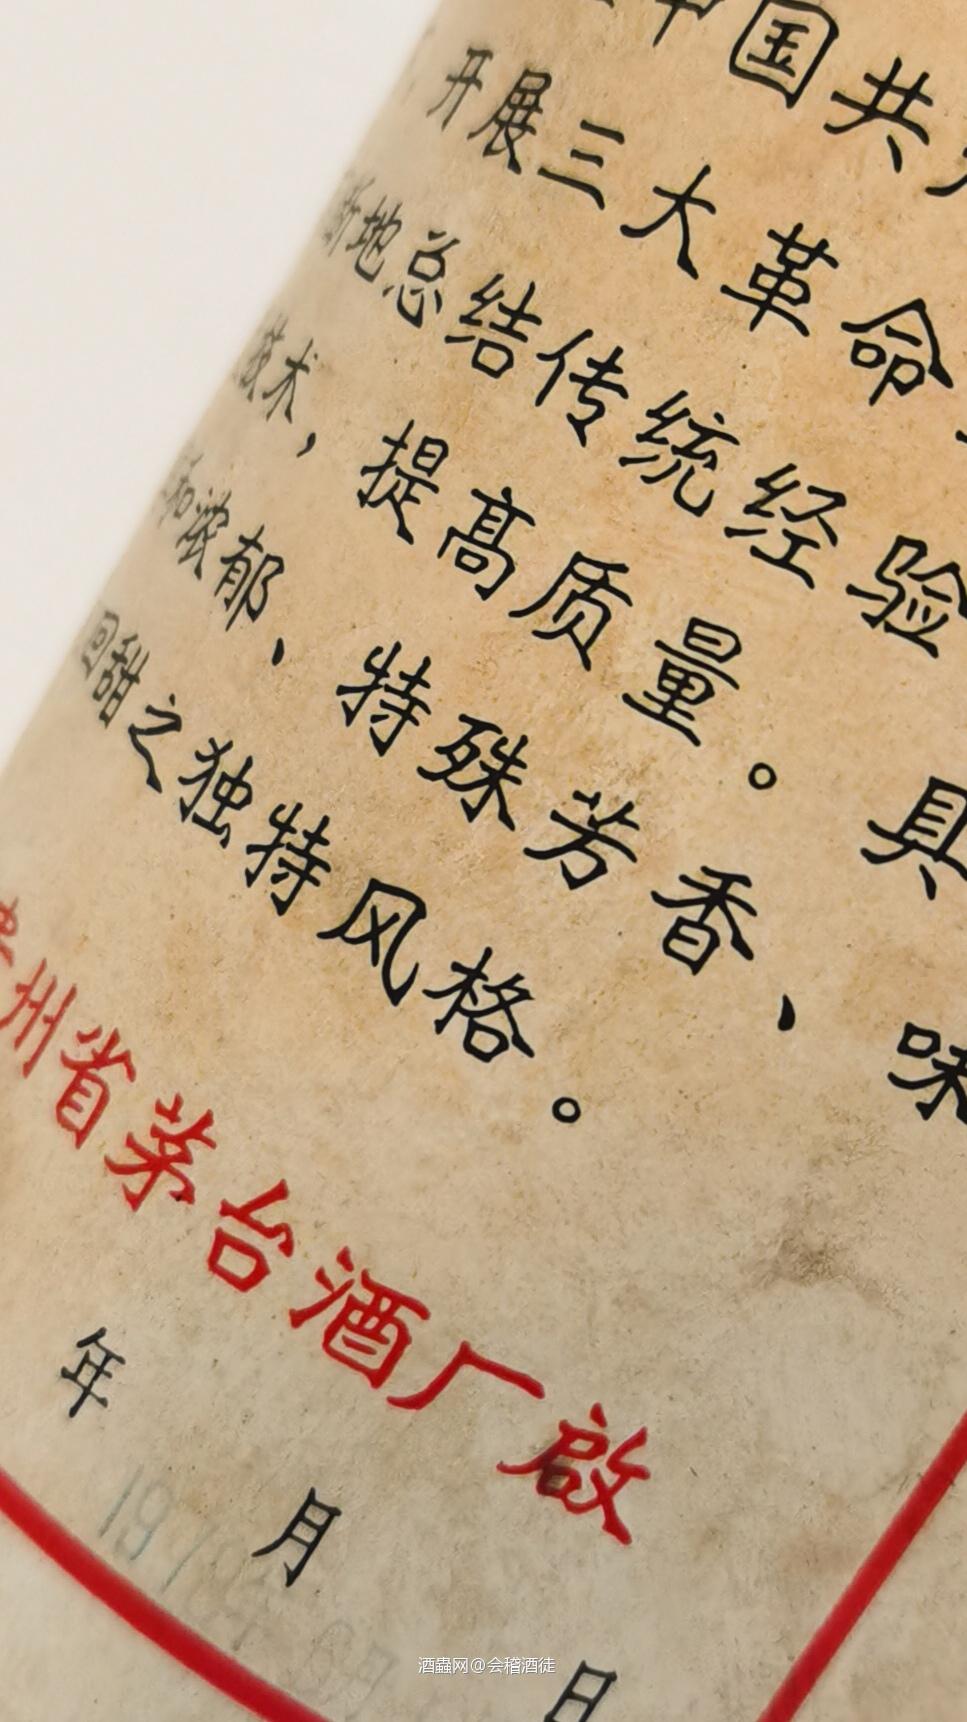 中国共
开展三大革命
断地总结传统经验
技术，提高质量。具
和浓郁、特殊芳香、味
回甜之独特风格。
州省茅台酒厂啟
年 月 日
197
酒蟲网@会稽酒徒